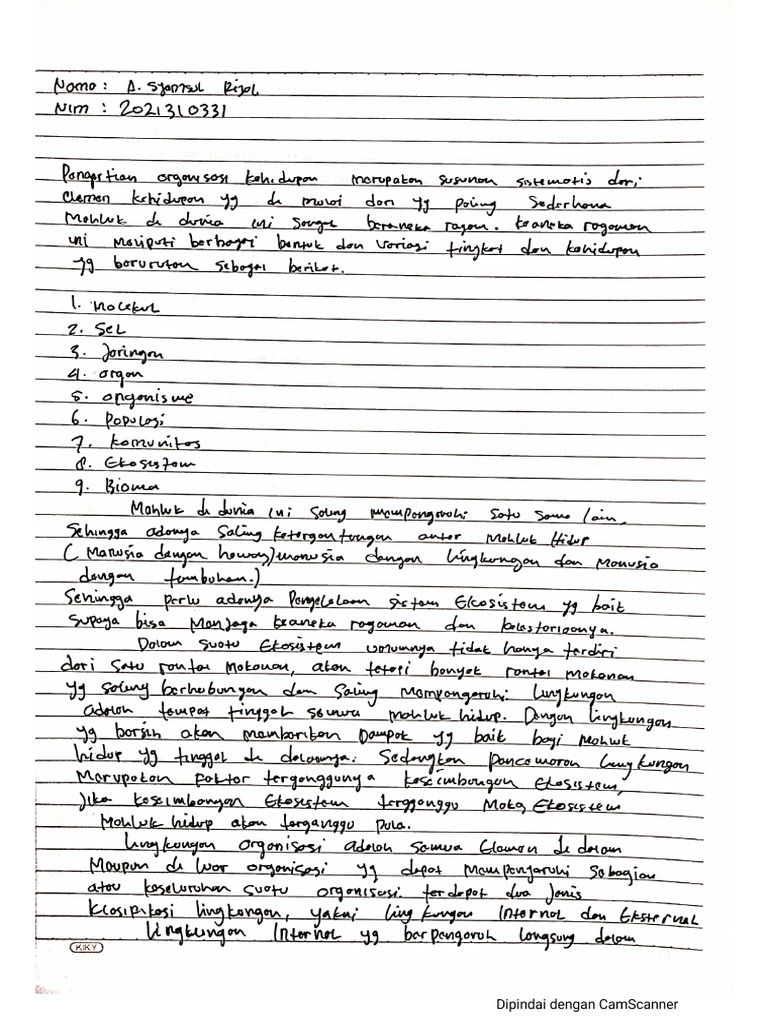 Nama : A. Syamsul Rijal
Nim : 2021310331
Pengertian organisasi kehidupan merupakan susunan sistematis dari
elemen kehidupan yg di mulai dari yg paling Sederhana
Mahluk di dunia ini sangat beraneka ragam. keaneka ragaman
ini meliputi berbagai bentuk dan variasi tingkat dan kehidupan
yg berurutan sebagai berikut.
1. Molekul
2. Sel
3. Jaringan
4. organ
5. organisme
6. Populasi
7. komunitas
8. Ekosistem
9. Bioma
Mahluk di dunia ini saling mempengaruhi satu sama lain,
Sehingga adanya saling ketergantungan antar Mahluk Hidup
( Manusia dengan hewan, manusia dengan lingkungan dan Manusia
dengan tumbuhan.)
Sehingga perlu adanya Pengelolaan sistem Ekosistem yg baik
supaya bisa Menjaga keaneka ragaman dan kelestariannya.
Dalam suatu Ekosistem umumnya tidak hanya terdiri
dari satu rantai Makanan, akan tetapi banyak rantai makanan
yg saling berhubungan dan Saling Mempengaruhi. lingkungan
adalah tempat tinggal semua mahluk hidup. Dengan lingkungan
yg bersih akan memberikan Dampak yg baik bagi mahluk
hidup yg tinggal di dalamnya. Sedangkan pencemaran lingkungan
Merupakan faktor terganggunya keseimbangan Ekosistem,
Jika keseimbangan Ekosistem terganggu Maka, Ekosistem
Mahluk hidup akan terganggu pula.
lingkungan organisasi adalah semua Elemen di dalam
Maupun di luar organisasi yg dapat Mempengaruhi Sebagian
atau keseluruhan suatu organisasi. terdapat dua Jenis
klasipikasi lingkungan, yakni lingkungan Internal dan Eksternal
lingkungan Internal yg berpengaruh langsung dalam
KIKY
Dipindai dengan CamScanner